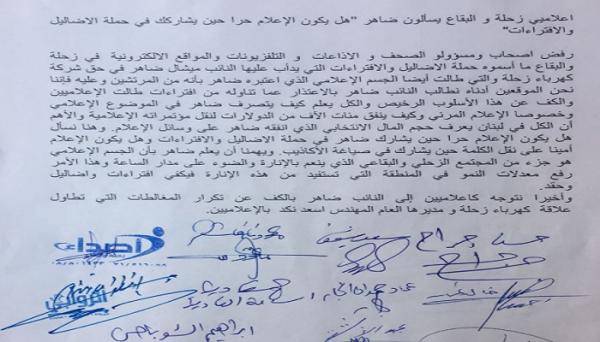 اعلاميي زحلة و البقاع يسألون ضاهر "هل يكون الإعلام حرا حين يشاركك في حملة الاضاليل
والافتراءات"
رفض اصحاب ومسؤولو الصحف و الاذاعات و التلفزيونات والمواقع الالكترونية في زحلة
والبقاع ما أسموه حملة الاضاليل والافتراءات التي يدأب عليها النائب ميشال ضاهر في حق شركة
كهرباء زحلة والتي طالت أيضا الجسم الإعلامي الذي اعتبره ضاهر بأنه من المرتشين وعليه فإننا
نحن الموقعين أدناه نطالب النائب ضاهر بالاعتذار عما تناوله من افتراءات طالت الإعلاميين
والكف عن هذا الأسلوب الرخيص والكل يعلم كيف يتصرف ضاهر في الموضوع الإعلامي
وخصوصا الإعلام المرئي وكيف ينفق مئات الآف من الدولارات لنقل مؤتمراته الإعلامية والأهم
أن الكل في لبنان يعرف حجم المال الانتخابي الذي انفقه ضاهر على وسائل الإعلام. وهنا نسأل
هل يكون الإعلام حرا حين يشارك ضاهر في حملة الاضاليل والافتراءات وهل يكون الإعلام
أمينا على نقل الكلمة حين يشارك في صياغة الأكاذيب. ويهمنا أن يعلم ضاهر بأن الجسم الإعلامي
هو جزء من المجتمع الزحلي والبقاعي الذي ينعم بالإنارة والضوء على مدار الساعة وهذا الأمر
رفع معدلات النمو في المنطقة التي تستفيد من هذه الإنارة فيكفي افتراءات واضاليل
وحقد.
وأخيرا نتوجه كاعلاميين إلى النائب ضاهر بالكف عن تكرار المغالطات التي تطاول
علاقة كهرباء زحلة و مديرها العام المهندس اسعد نكد بالإعلاميين.
أصداء
حسنا جراح
ابراهيم الشوباصي